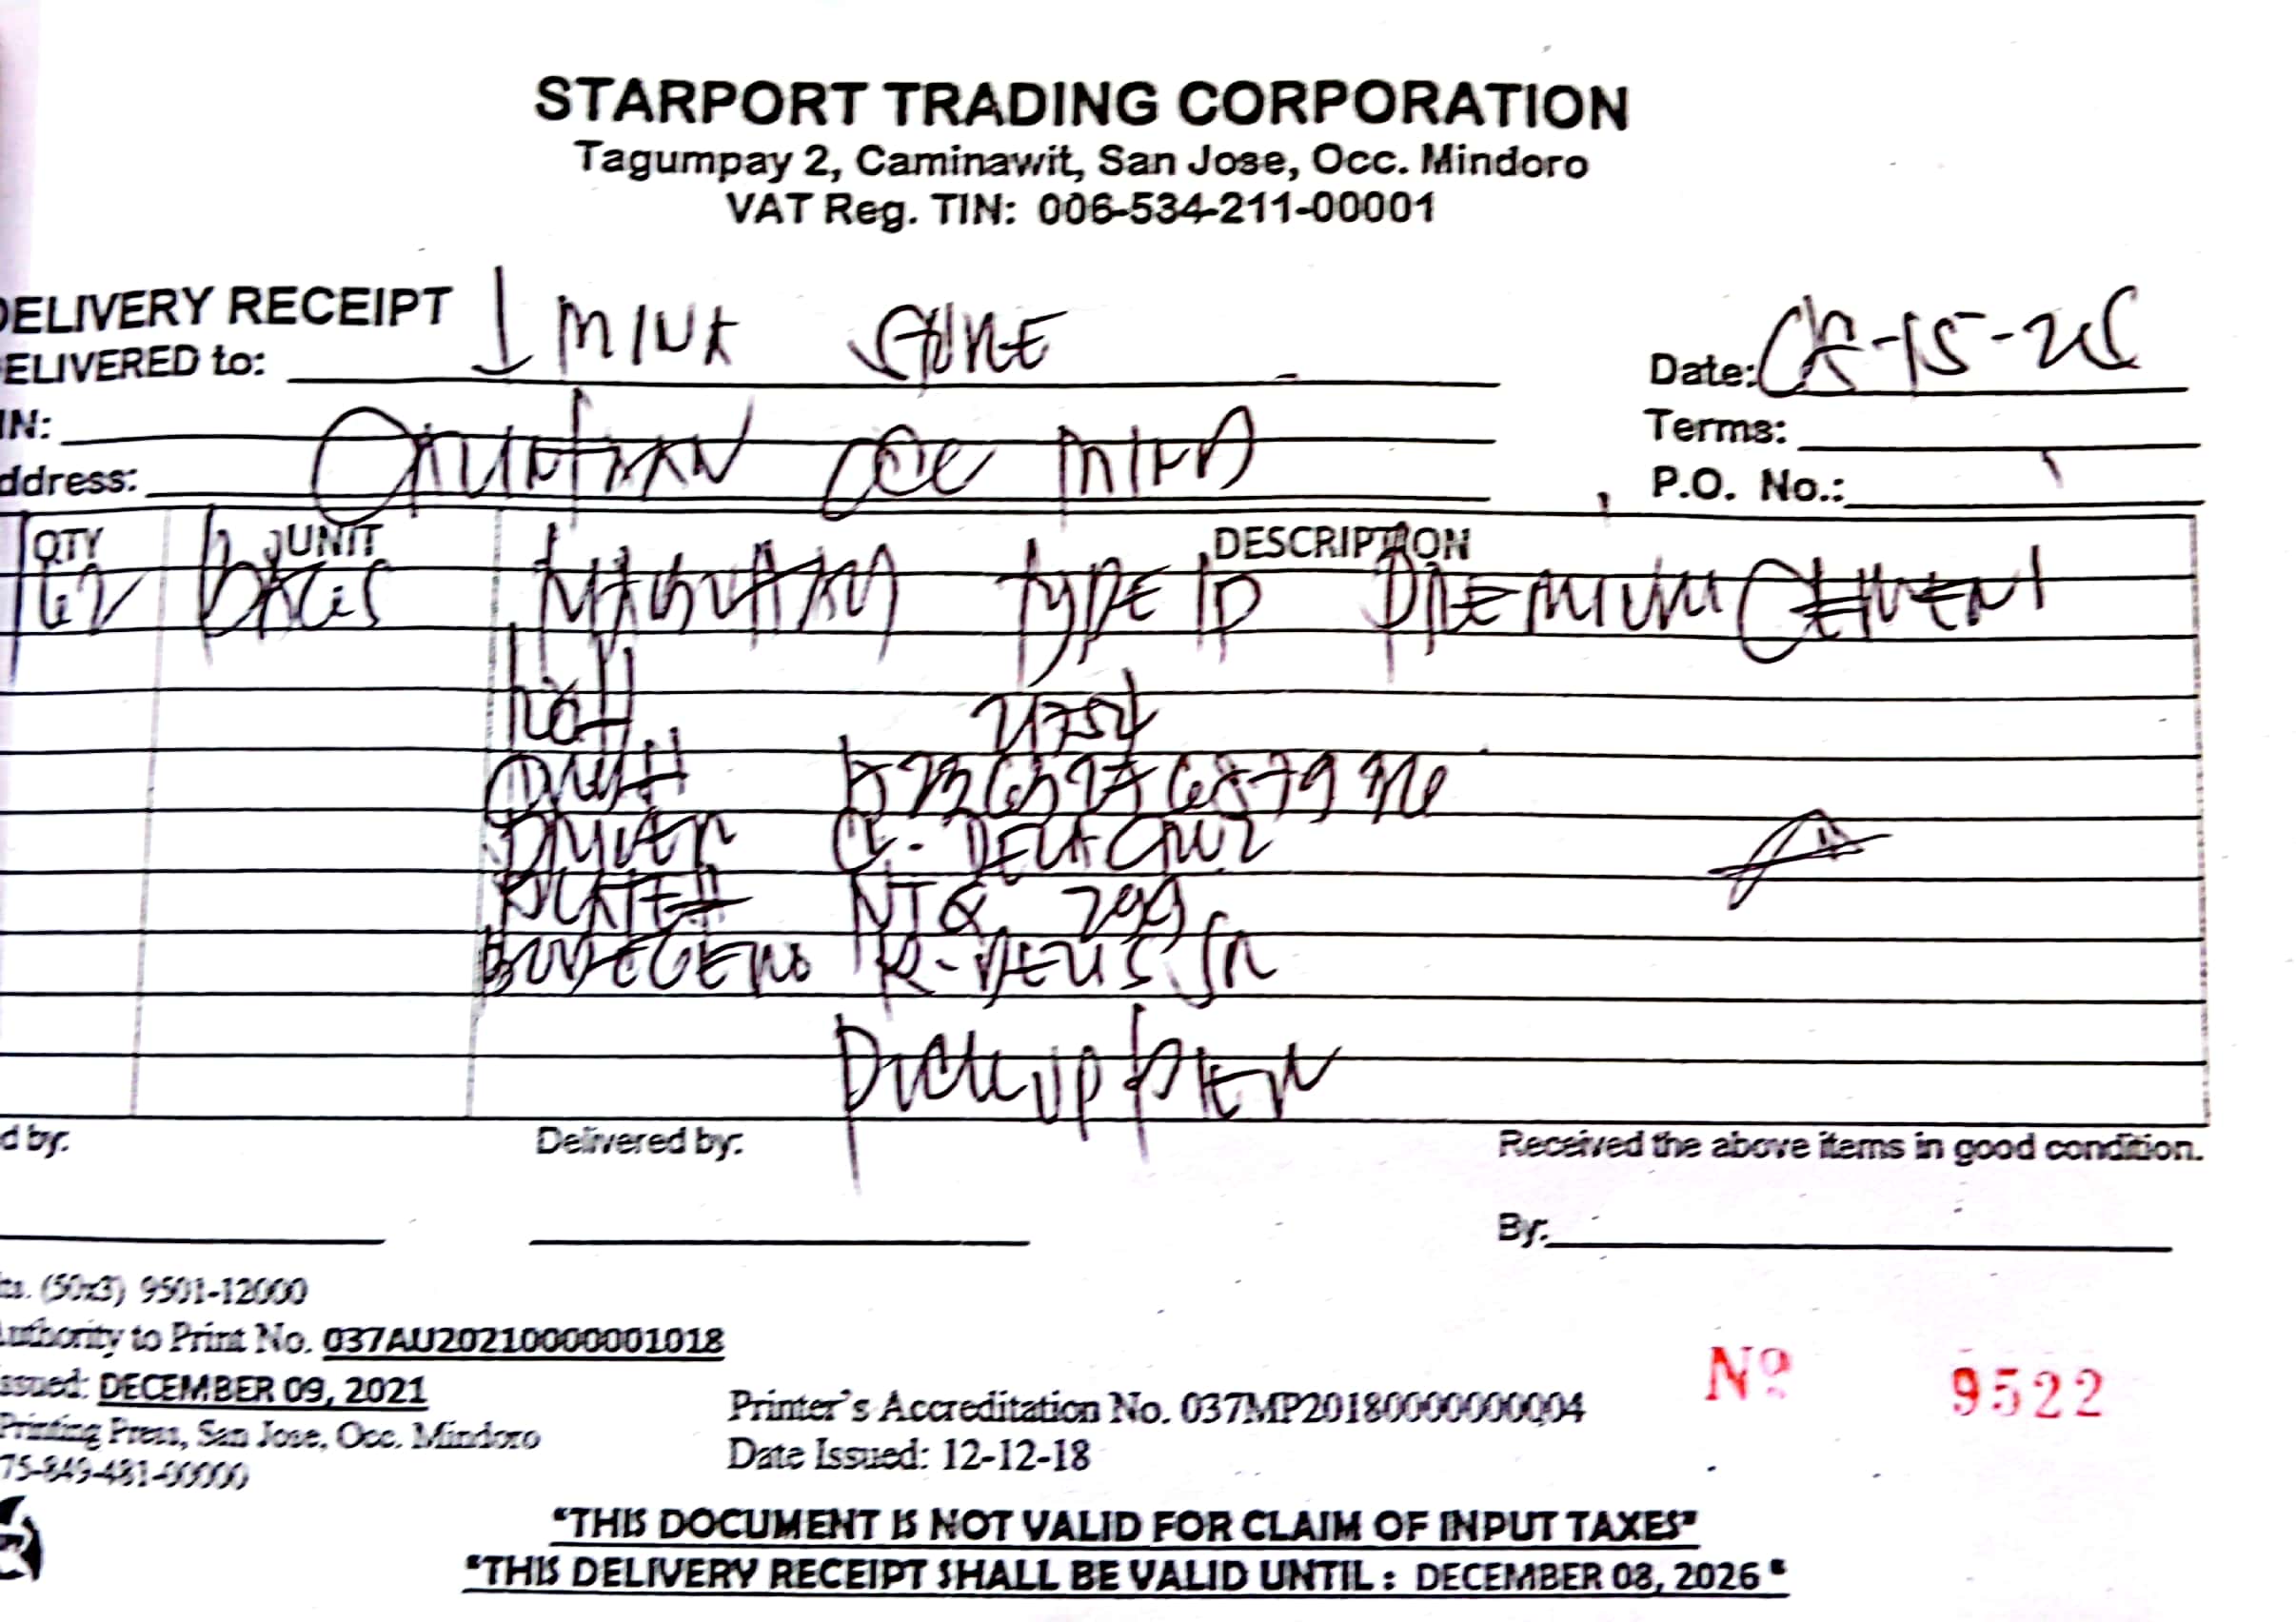 STARPORT TRADING CORPORATION
Tagumpay 2, Caminawit, San Jose, Occ. Mindoro
VAT Reg. TIN: 006-534-211-00001
DELIVERY RECEIPT
ELIVERED to: J MINA STORE
Date: -15-25
IN:
Terms:
ddress: OCC MIND
P.O. No.:
QTY UNIT DESCRIPTION
BAGS TYPE 1P PREMIUM CEMENT
DRIVER C. DELA CRUZ
PLATE#
BODEGERO R. DEUS JR
PICK UP PIER
d by:
Delivered by:
Received the above items in good condition.
By:
ts. (50x3) 9501-12000
Authority to Print No. 037AU20210000001018
ssued: DECEMBER 09, 2021
Printing Press, San Jose, Occ. Mindoro
75-849-481-00000
Printer's Accreditation No. 037MP20180000000004
Date Issued: 12-12-18
Nº 9522
"THIS DOCUMENT IS NOT VALID FOR CLAIM OF INPUT TAXES"
"THIS DELIVERY RECEIPT SHALL BE VALID UNTIL : DECEMBER 08, 2026"